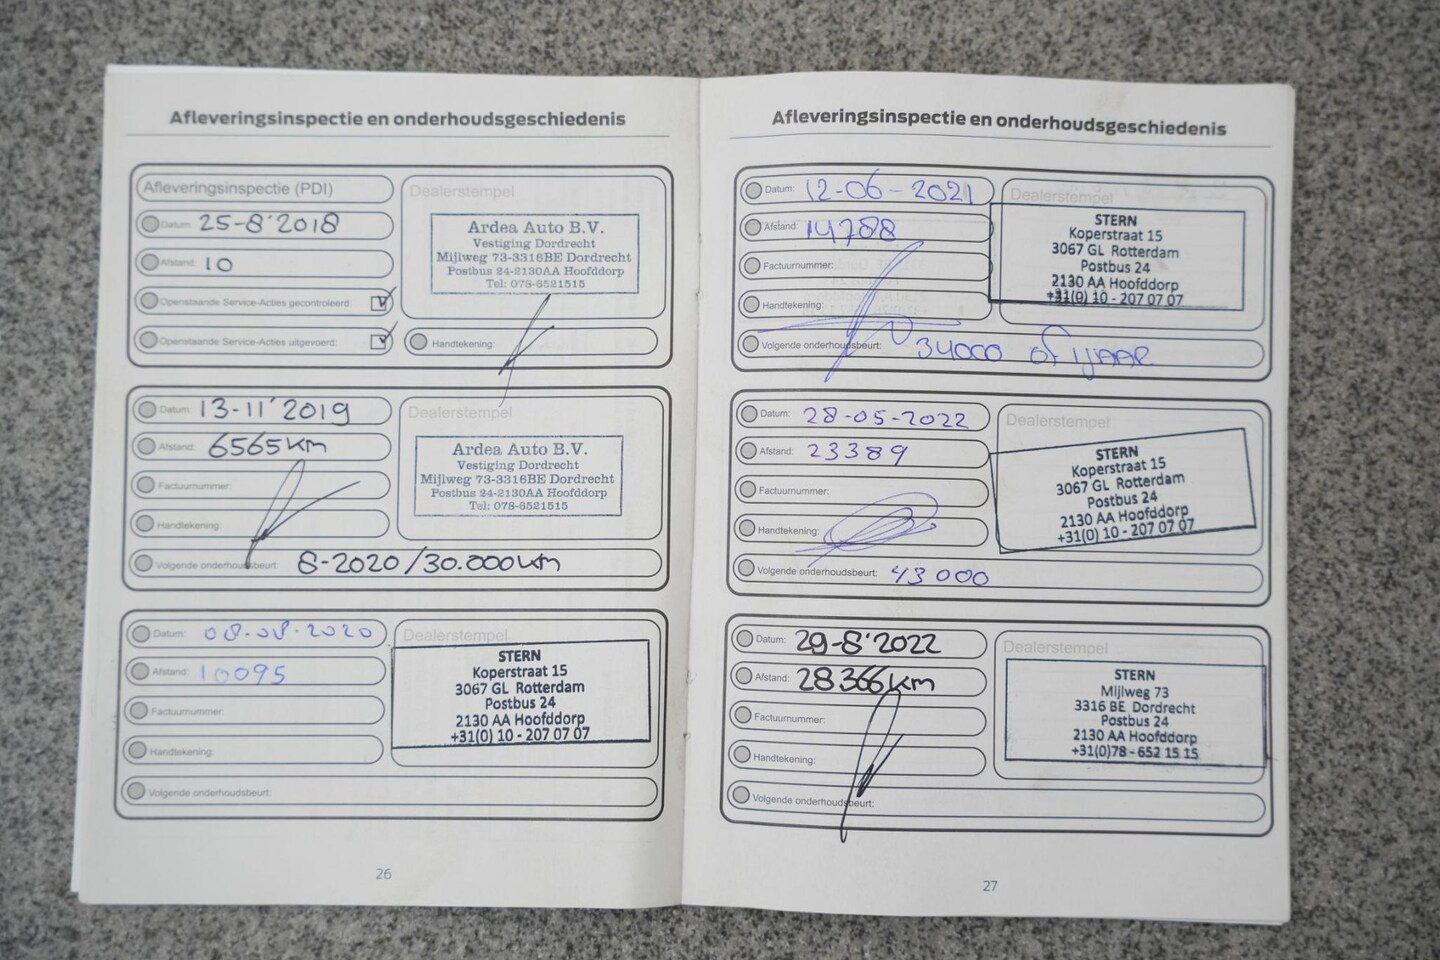 Afleveringsinspectie en onderhoudsgeschiedenis
Afleveringsinspectie (PDI)
Datum: 25-8'2018
Afstand: 10
Openstaande Service-Acties gecontroleerd:
Openstaande Service-Acties uitgevoerd:
Dealerstempel
Ardea Auto B.V.
Vestiging Dordrecht
Mijlweg 73-3316BE Dordrecht
Postbus 24-2130AA Hoofddorp
Tel: 078-6521515
Handtekening:
Datum: 13-11'2019
Afstand: 6565km
Factuurnummer:
Handtekening:
Volgende onderhoudsbeurt: 8-2020/30.000km
Dealerstempel
Ardea Auto B.V.
Vestiging Dordrecht
Mijlweg 73-3316BE Dordrecht
Postbus 24-2130AA Hoofddorp
Tel: 078-6521515
Datum: 08-08-2020
Afstand: 10095
Factuurnummer:
Handtekening:
Volgende onderhoudsbeurt:
Dealerstempel
STERN
Koperstraat 15
3067 GL Rotterdam
Postbus 24
2130 AA Hoofddorp
+31(0) 10 - 207 07 07
26
Afleveringsinspectie en onderhoudsgeschiedenis
Datum: 12-06-2021
Afstand: 14788
Factuurnummer:
Handtekening:
Volgende onderhoudsbeurt: 34000 of 1 JAAR
Dealerstempel
STERN
Koperstraat 15
3067 GL Rotterdam
Postbus 24
2130 AA Hoofddorp
+31(0) 10 - 207 07 07
Datum: 28-05-2022
Afstand: 23389
Factuurnummer:
Handtekening:
Volgende onderhoudsbeurt: 43000
Dealerstempel
STERN
Koperstraat 15
3067 GL Rotterdam
Postbus 24
2130 AA Hoofddorp
+31(0) 10 - 207 07 07
Datum: 29-8'2022
Afstand: 28366km
Factuurnummer:
Handtekening:
Volgende onderhoudsbeurt:
Dealerstempel
STERN
Mijlweg 73
3316 BE Dordrecht
Postbus 24
2130 AA Hoofddorp
+31(0)78 - 652 15 15
27